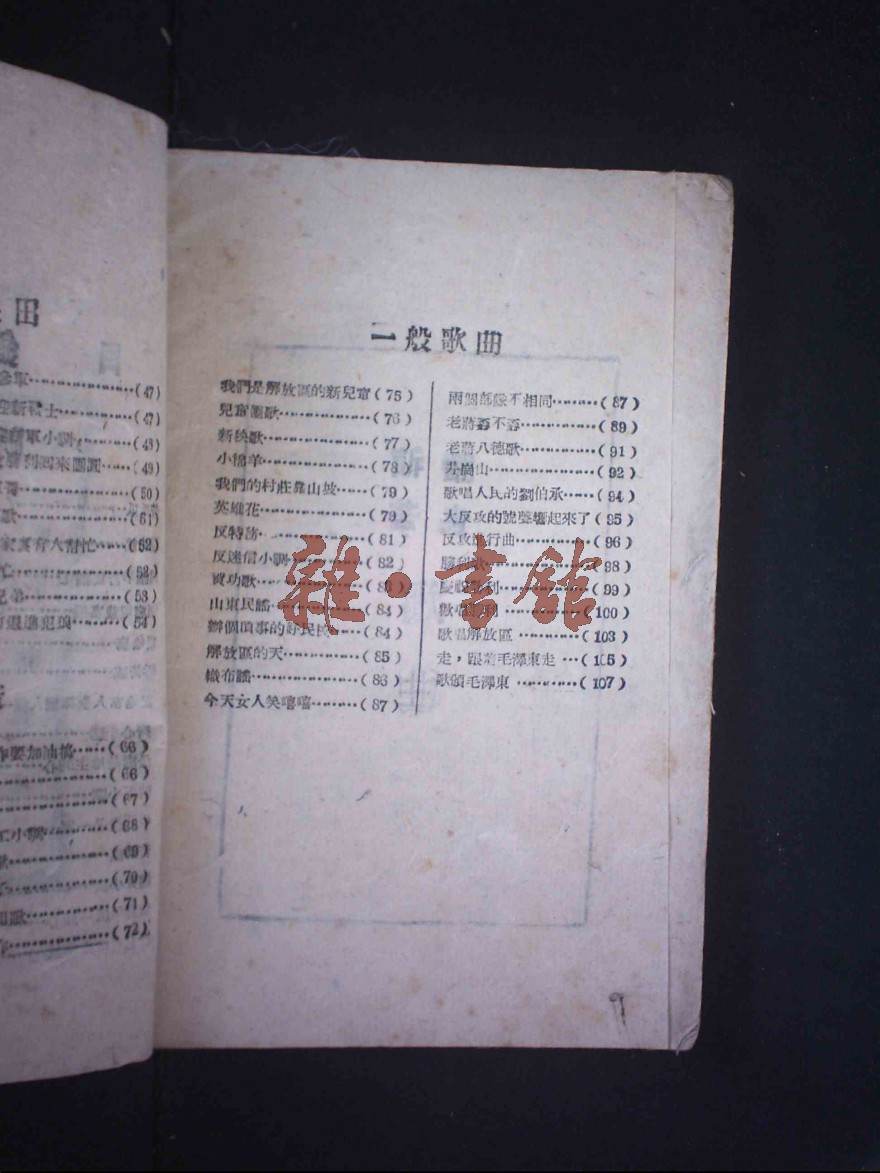 田
參軍……(47)
新戰士……(47)
軍小調……(43)
利回來團圓……(49)
(50)
歌……(51)
(52)
忙……(52)
兄弟……(53)
(54)
加油搞……(66)
……(66)
……(67)
工小調……(68)
歌……(69)
……(70)
歌……(71)
……(72)
一般歌曲
我們是解放區的新兒童(75)
兒童團歌……(76)
新秧歌……(77)
小棉羊……(78)
我們的村莊靠山坡……(79)
英雄花……(79)
反特務……(81)
反迷信小調……(82)
賣功歌……
山東民謠……(84)
辦個頂事的好民校……(84)
解放區的天……(85)
織布謠……(86)
今天女人笑嘻嘻……(87)
兩個部隊不相同……(87)
老蔣……(89)
老蔣八德歌……(91)
井崗山……(92)
歌唱人民的劉伯承……(94)
大反攻的號聲響起來了(95)
反攻進行曲……(96)
勝利歌……(98)
慶祝勝利……(99)
歡呼勝利……(100)
歌唱解放區……(103)
走，跟着毛澤東走…(105)
歌頌毛澤東……(107)
雜·書館
9